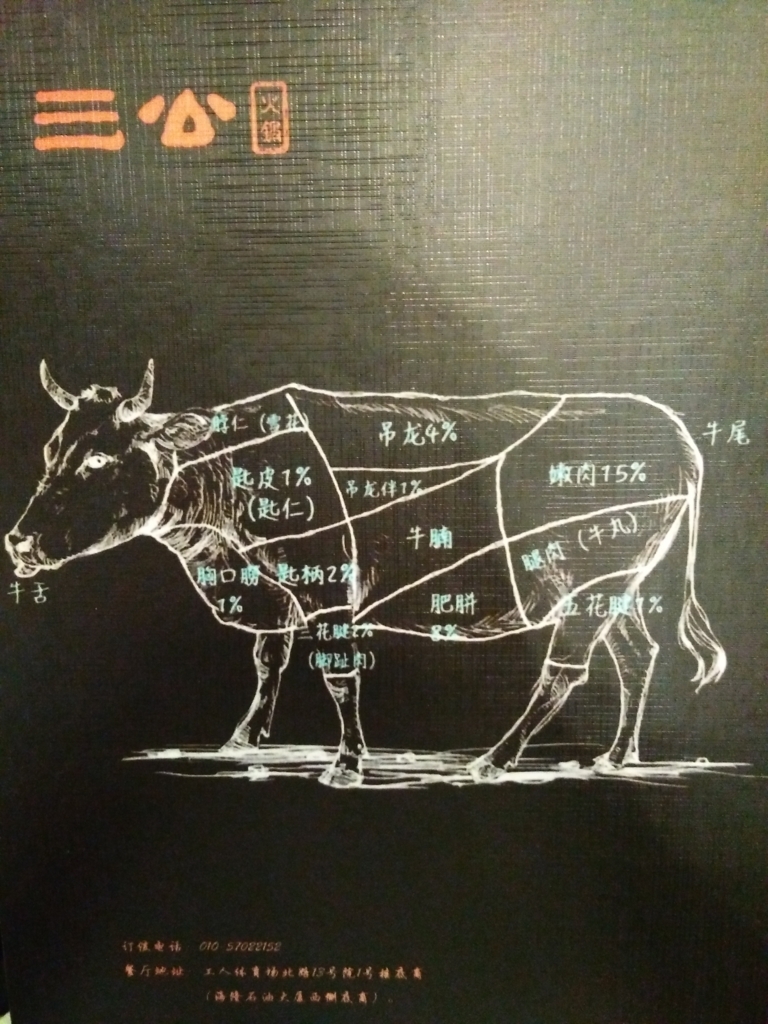 三公 火鍋
脖仁 (雪花)
吊龙4%
牛尾
匙皮1%
(匙仁)
吊龙伴1%
嫩肉15%
牛腩
腿肉 (牛丸)
牛舌
胸口朥
1%
匙柄2%
肥胼
8%
五花腱1%
三花腱2%
(脚趾肉)
订餐电话 010-57022152
餐厅地址 工人体育场北路13号院1号楼底商
(海隆石油大厦西侧底商)。